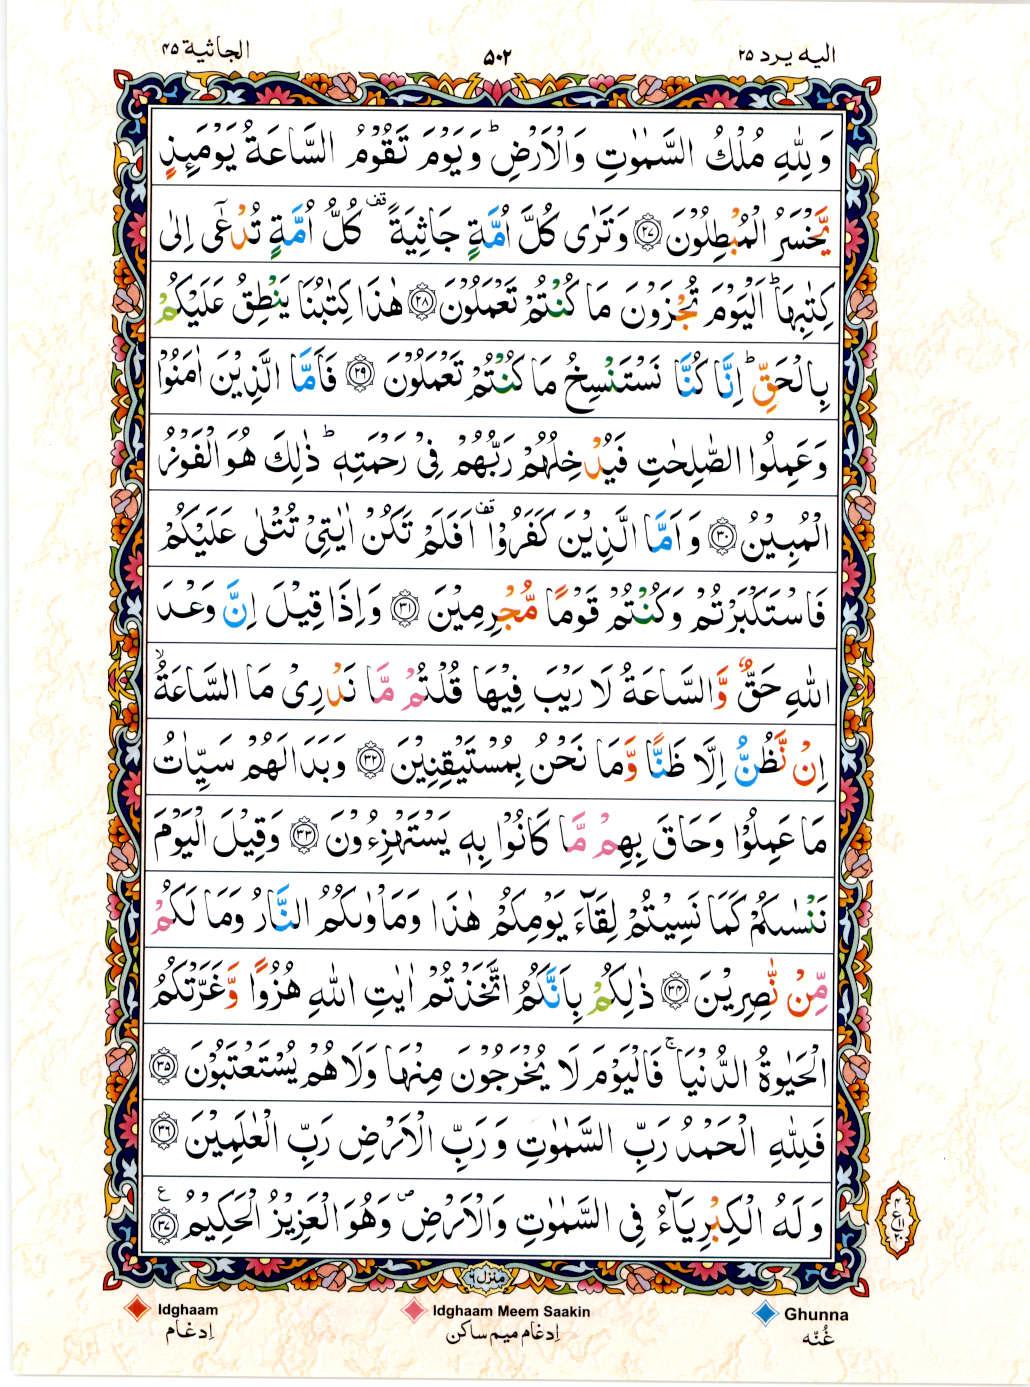 الجاثية ٤٥
٥٠٢
اليه يرد ٢٥
وَلِلّٰهِ مُلْكُ السَّمٰوٰتِ وَالْاَرْضِ ؕ وَيَوْمَ تَقُوْمُ السَّاعَةُ يَوْمَئِذٍ
يَّخْسَرُ الْمُبْطِلُوْنَ ﴿۲۷﴾ وَتَرٰى كُلَّ اُمَّةٍ جَاثِيَةً ۟ كُلُّ اُمَّةٍ تُدْعٰۤى اِلٰى
كِتٰبِهَا ؕ اَلْيَوْمَ تُجْزَوْنَ مَا كُنْتُمْ تَعْمَلُوْنَ ﴿۲۸﴾ هٰذَا كِتٰبُنَا يَنْطِقُ عَلَيْكُمْ
بِالْحَقِّ ؕ اِنَّا كُنَّا نَسْتَنْسِخُ مَا كُنْتُمْ تَعْمَلُوْنَ ﴿۲۹﴾ فَاَمَّا الَّذِيْنَ اٰمَنُوْا
وَعَمِلُوا الصّٰلِحٰتِ فَيُدْخِلُهُمْ رَبُّهُمْ فِىْ رَحْمَتِهٖ ؕ ذٰلِكَ هُوَ الْفَوْزُ
الْمُبِيْنُ ﴿۳۰﴾ وَاَمَّا الَّذِيْنَ كَفَرُوْا ۟ اَفَلَمْ تَكُنْ اٰيٰتِىْ تُتْلٰى عَلَيْكُمْ
فَاسْتَكْبَرْتُمْ وَكُنْتُمْ قَوْمًا مُّجْرِمِيْنَ ﴿۳۱﴾ وَاِذَا قِيْلَ اِنَّ وَعْدَ
اللّٰهِ حَقٌّ وَّالسَّاعَةُ لَا رَيْبَ فِيْهَا قُلْتُمْ مَّا نَدْرِىْ مَا السَّاعَةُ ۙ
اِنْ نَّظُنُّ اِلَّا ظَنًّا وَّمَا نَحْنُ بِمُسْتَيْقِنِيْنَ ﴿۳۲﴾ وَبَدَا لَهُمْ سَيِّاٰتُ
مَا عَمِلُوْا وَحَاقَ بِهِمْ مَّا كَانُوْا بِهٖ يَسْتَهْزِءُوْنَ ﴿۳۳﴾ وَقِيْلَ الْيَوْمَ
نَنْسٰىكُمْ كَمَا نَسِيْتُمْ لِقَآءَ يَوْمِكُمْ هٰذَا وَمَاْوٰىكُمُ النَّارُ وَمَا لَكُمْ
مِّنْ نّٰصِرِيْنَ ﴿۳۴﴾ ذٰلِكُمْ بِاَنَّكُمُ اتَّخَذْتُمْ اٰيٰتِ اللّٰهِ هُزُوًا وَّغَرَّتْكُمُ
الْحَيٰوةُ الدُّنْيَا ۚ فَالْيَوْمَ لَا يُخْرَجُوْنَ مِنْهَا وَلَا هُمْ يُسْتَعْتَبُوْنَ ﴿۳۵﴾
فَلِلّٰهِ الْحَمْدُ رَبِّ السَّمٰوٰتِ وَرَبِّ الْاَرْضِ رَبِّ الْعٰلَمِيْنَ ﴿۳۶﴾
وَلَهُ الْكِبْرِيَآءُ فِى السَّمٰوٰتِ وَالْاَرْضِ ۪ وَهُوَ الْعَزِيْزُ الْحَكِيْمُ ﴿۳۷﴾ ع
منزل ٦
Idghaam
Idghaam Meem Saakin
Ghunna
اِدغام
اِدغام میم ساکن
غُنّه